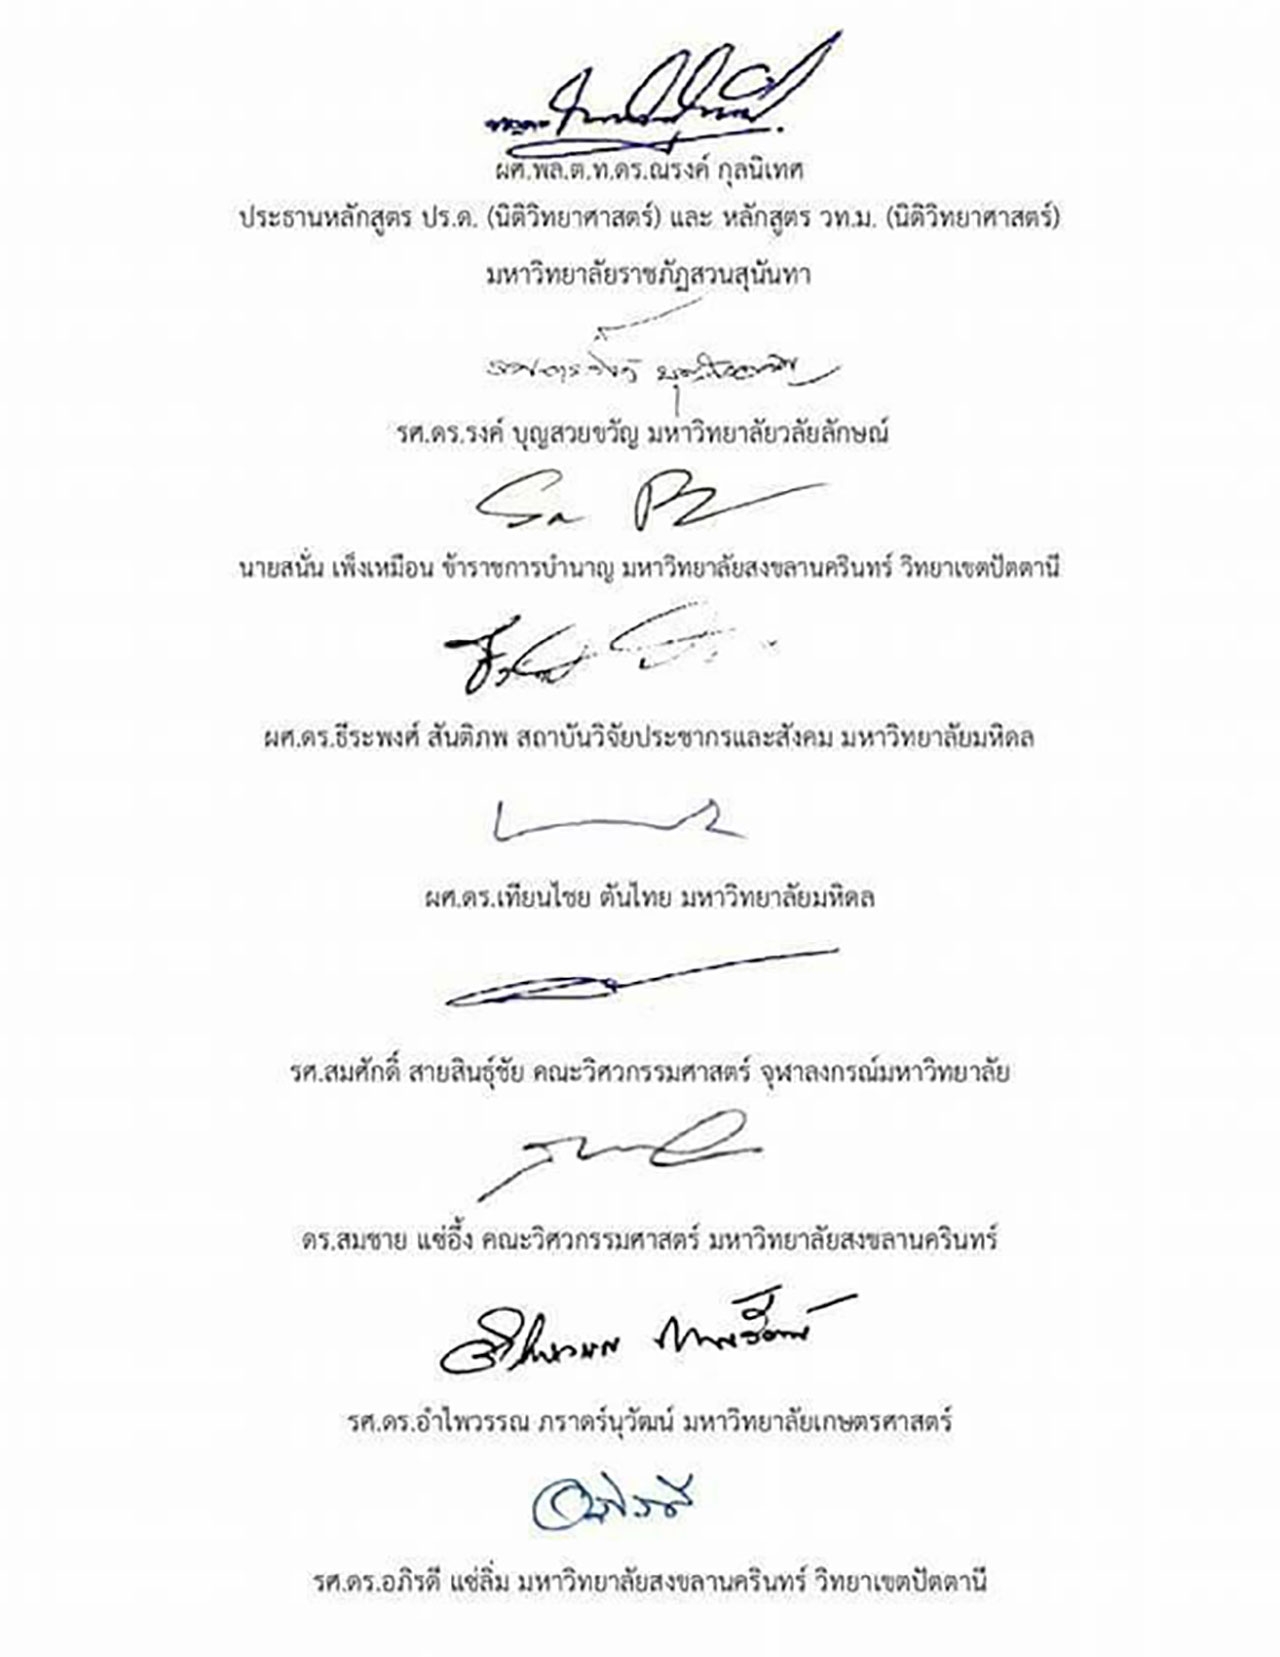 ผศ.พล.ต.ท.ดร.ณรงค์ กุลนิเทศ
ประธานหลักสูตร ปร.ด. (นิติวิทยาศาสตร์) และ หลักสูตร วท.ม. (นิติวิทยาศาสตร์)
มหาวิทยาลัยราชภัฏสวนสุนันทา
รศ.ดร.รงค์ บุญสวยขวัญ มหาวิทยาลัยวลัยลักษณ์
นายสนั่น เพ็งเหมือน ข้าราชการบำนาญ มหาวิทยาลัยสงขลานครินทร์ วิทยาเขตปัตตานี
ผศ.ดร.ธีระพงศ์ สันติภพ สถาบันวิจัยประชากรและสังคม มหาวิทยาลัยมหิดล
ผศ.ดร.เทียนไชย ตันไทย มหาวิทยาลัยมหิดล
รศ.สมศักดิ์ สายสินธุ์ชัย คณะวิศวกรรมศาสตร์ จุฬาลงกรณ์มหาวิทยาลัย
ดร.สมชาย แซ่อึ้ง คณะวิศวกรรมศาสตร์ มหาวิทยาลัยสงขลานครินทร์
รศ.ดร.อำไพวรรณ ภราดร์นุวัฒน์ มหาวิทยาลัยเกษตรศาสตร์
อภิรดี
รศ.ดร.อภิรดี แซ่ลิ่ม มหาวิทยาลัยสงขลานครินทร์ วิทยาเขตปัตตานี